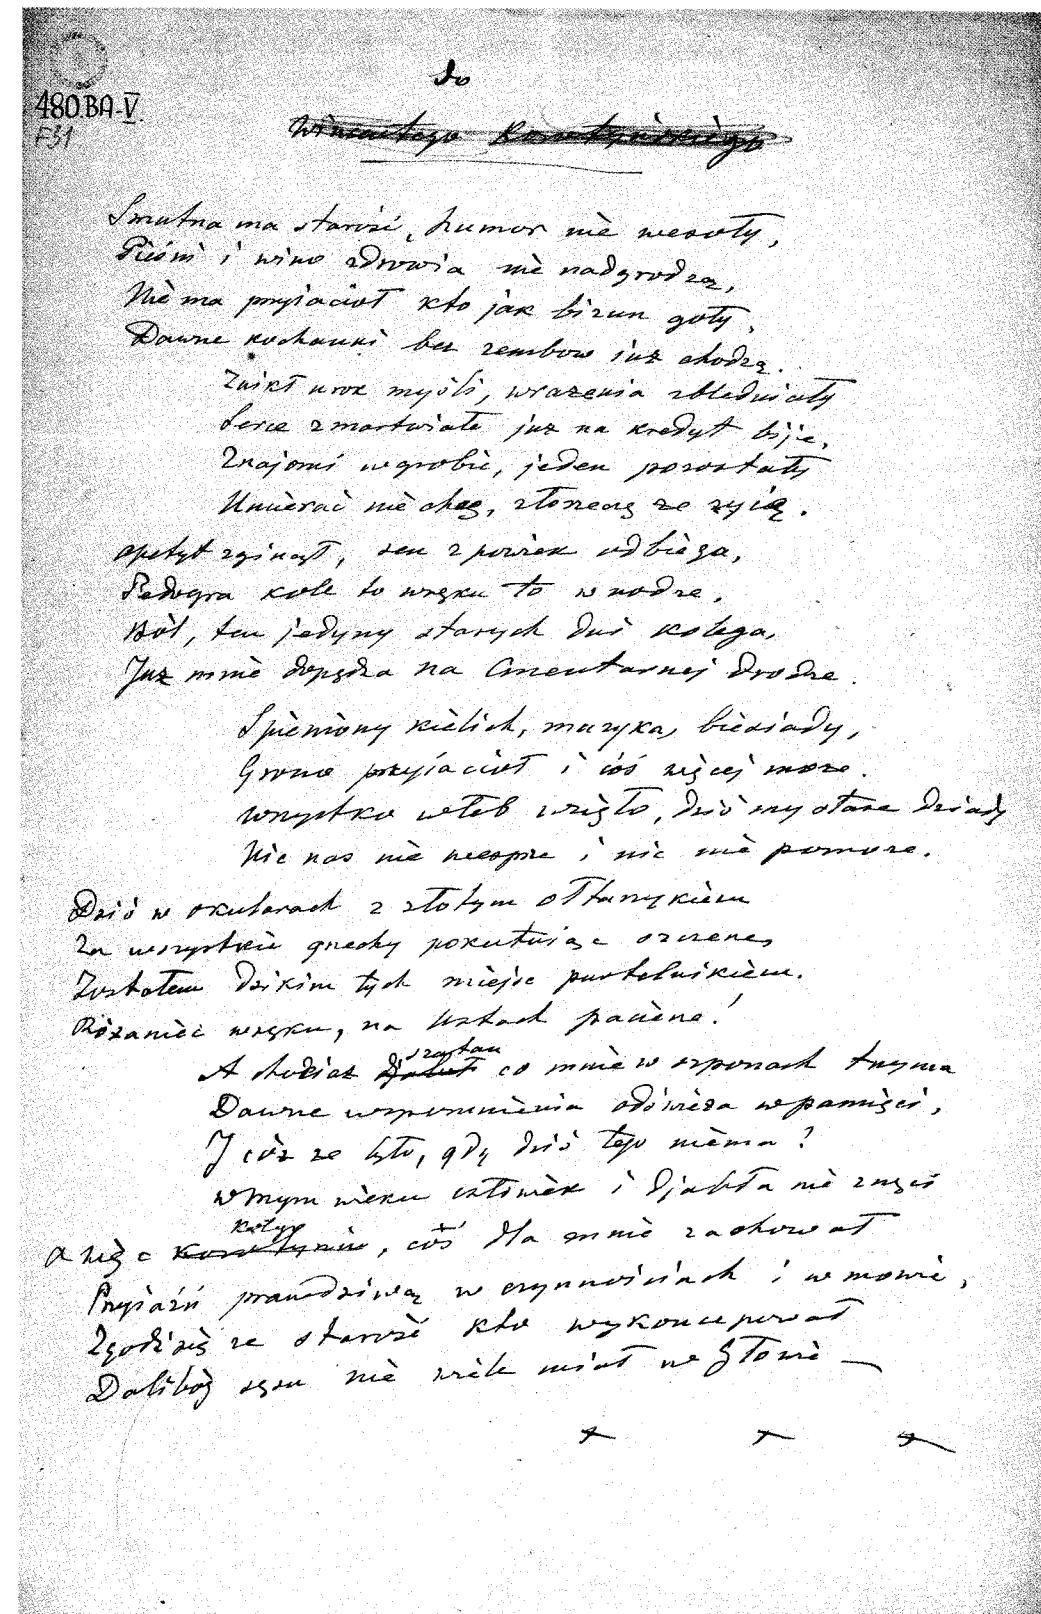 480.BA-V.
F31
do
Wincentego Korotyńskiego
Smutna ma starość, humor niè wesoły,
Pieśni i wino zdrowia niè nadgrodzą,
Niè ma pryiacioł kto jak bizun goły,
Dawne kochanki bez zembow juz chodzą.
Znikł urok myśli, wrazenia zbledniały
Serce zmartwiałe juz na kredyt bije,
Znajomi w grobie, jeden pozostały
Umierać niè chcę, złorzeczę ze zyię.
apetyt zginął, sen z powiek odbiega,
Podogra kole to w ręku to w nodze,
Ból, ten jedyny starych dni kolega,
Juz mniè dopędza na Cmentarnej drodze.
Spieniony kielich, muzyka, biesiady,
Grono przyiacioł i cóś więcej moze.
Wszystko w łeb wzięło, dziś my stare dziady
Nic nas niè wesprze i nic niè pomoze.
Dziś w okularach z złotym ołtarzykiem
Za wszystkie grzechy pokutuiąc szczerze,
Zostałem dzikim tych miejsc pustelnikiem.
Rózaniec w ręku, na Ustach pacierze!
A chociaz djabeł szatan co mniè w szponach trzyma
Dawne wspomnienia odświeza w pamięci,
I cóz ze było, gdy dziś tego niema?
W mym wieku człowiek i Djabła niè znęci
A więc Korotyniu Kotyo, cóś dla mniè zachował
Pryiaźń prawdziwą w czynnościach i w mowie,
Zgodź się ze starość kto wykoncepował
Dalibóg sęsu niè wiele miał w Głowie —